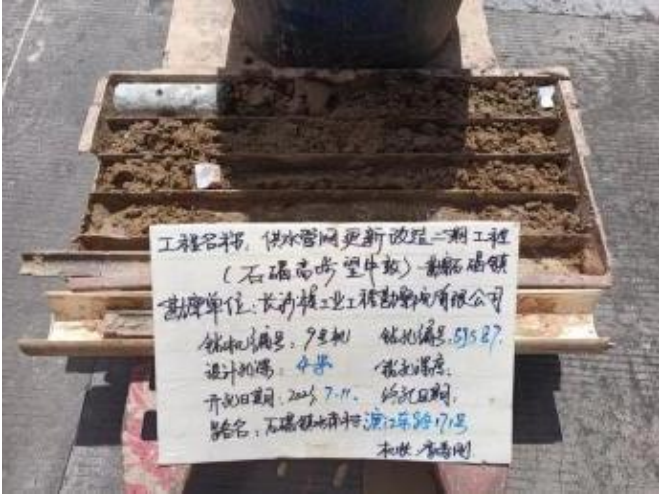 工程名称: 供水管网更新改造二期工程
(石碣高埗望牛墩)—勘察石碣镇
勘察单位: 长沙核工业工程勘察院有限公司
钻机编号: 9号机 钻孔编号:SJS87.
设计孔深: 4米 终孔深度:
开孔日期: 2025, 7.11. 终孔日期:
路名: 石碣镇 滨江东路171号
机长: